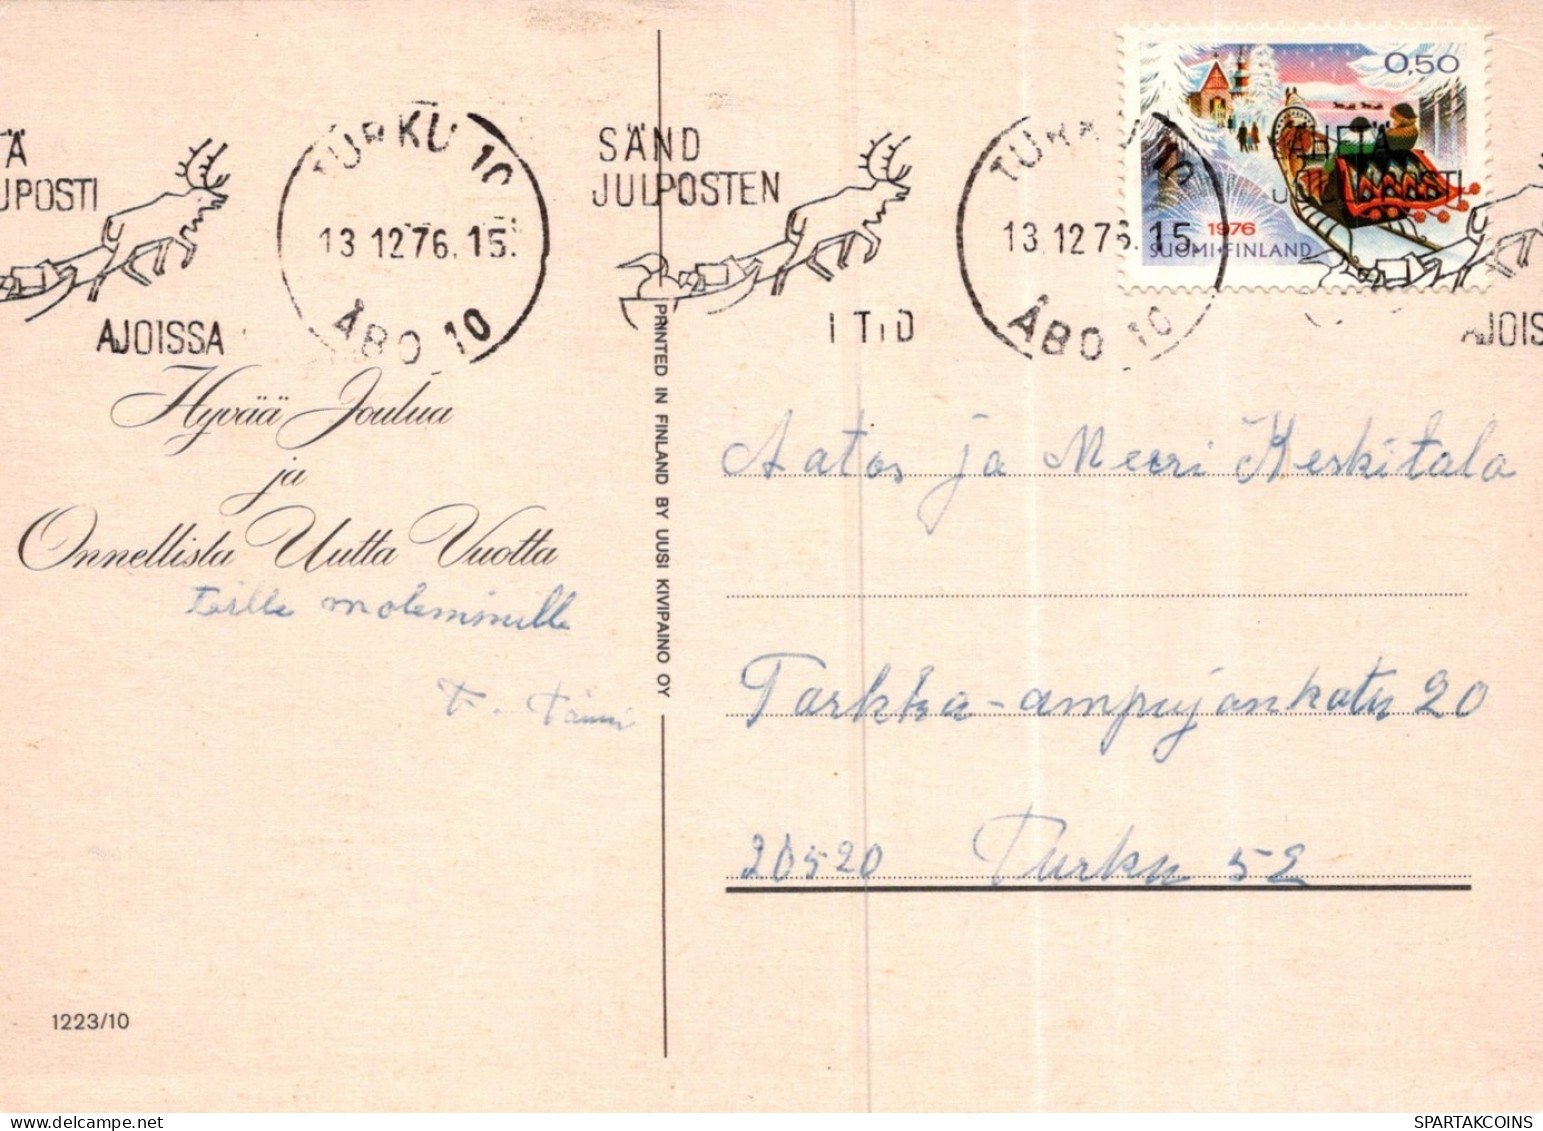 TÄ
UPOSTI
AJOISSA
TURKU 10
13.12.76.15.
ÅBO 10
SÄND
JULPOSTEN
I TID
TURKU 10
13.12.76.15
ÅBO 10
0,50
LÄHETÄ
JOULUPOSTI
1976
SUOMI·FINLAND
AJOIS
Hyvää Joulua
ja
Onnellista Uutta Vuotta
teille molemmille
PRINTED IN FINLAND BY UUSI KIVIPAINO OY
Aatos ja Meeri Keskitalo
Tarkka-ampujankatu 20
20520 Turku 52
1223/10
delcampe.net
SPARTAKCOINS